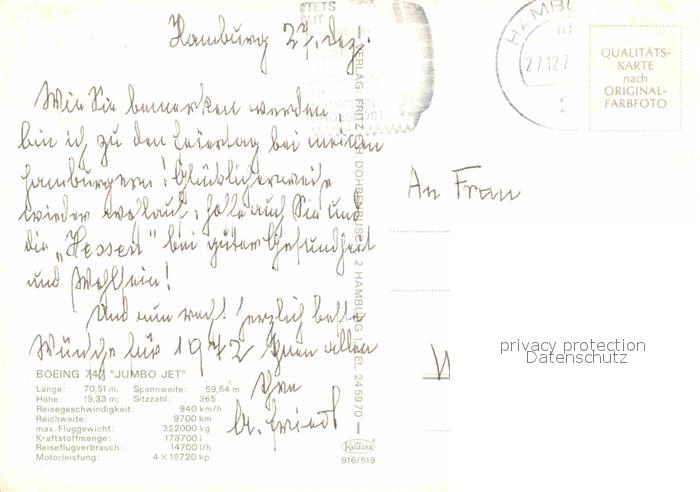 Hamburg 27. Dez.
Wie Sie bemerken werden
bin ich zu den Feiertag bei meinen
Hamburgern! Glücklicherweise
wieder wohlauf; hoffe auch Sie und
die „Hessen" bei guter Gesundheit
und Wohlsein!
Und nun recht herzlich beste
Wünsche für 1972 Ihnen allen
Ihre
A. Friedl
BOEING 747 "JUMBO JET"
Länge: 70,51 m; Spannweite: 59,64 m
Höhe: 19,33 m; Sitzzahl: 365
Reisegeschwindigkeit: 940 km/h
Reichweite: 9700 km
max. Fluggewicht: 322000 kg
Kraftstoffmenge: 178700 l
Reiseflugverbrauch: 14700 l/h
Motorleistung: 4 × 18720 kp
916/519
HAMBU
27.12.7
2
QUALITÄTS-
KARTE
nach
ORIGINAL-
FARBFOTO
An Frau
privacy protection
Datenschutz